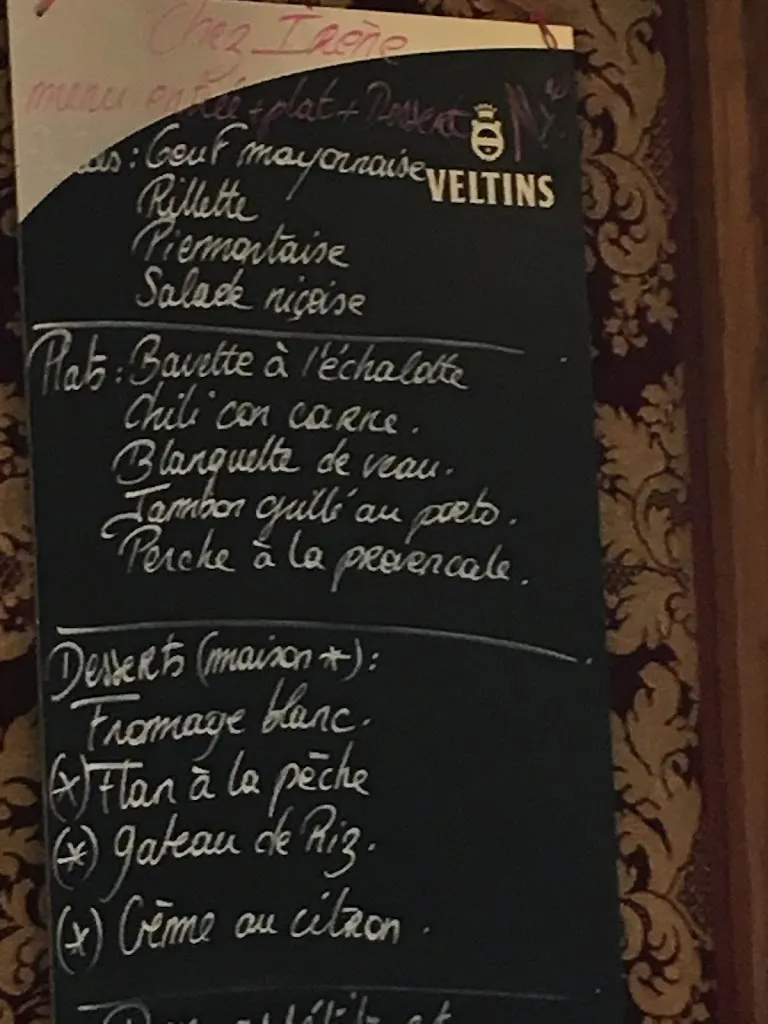 Chez Irène
menu entrée + plat + Dessert
VELTINS
Oeuf mayonnaise
Rillette
Piemontaise
Salade niçoise
Plats : Bavette à l'échalotte
Chili con carne.
Blanquette de veau.
Jambon grillé au porto.
Perche à la provencale.
Desserts (maison *) :
Fromage blanc.
(*) Flan à la pêche
(*) gateau de Riz.
(*) Crème au citron.